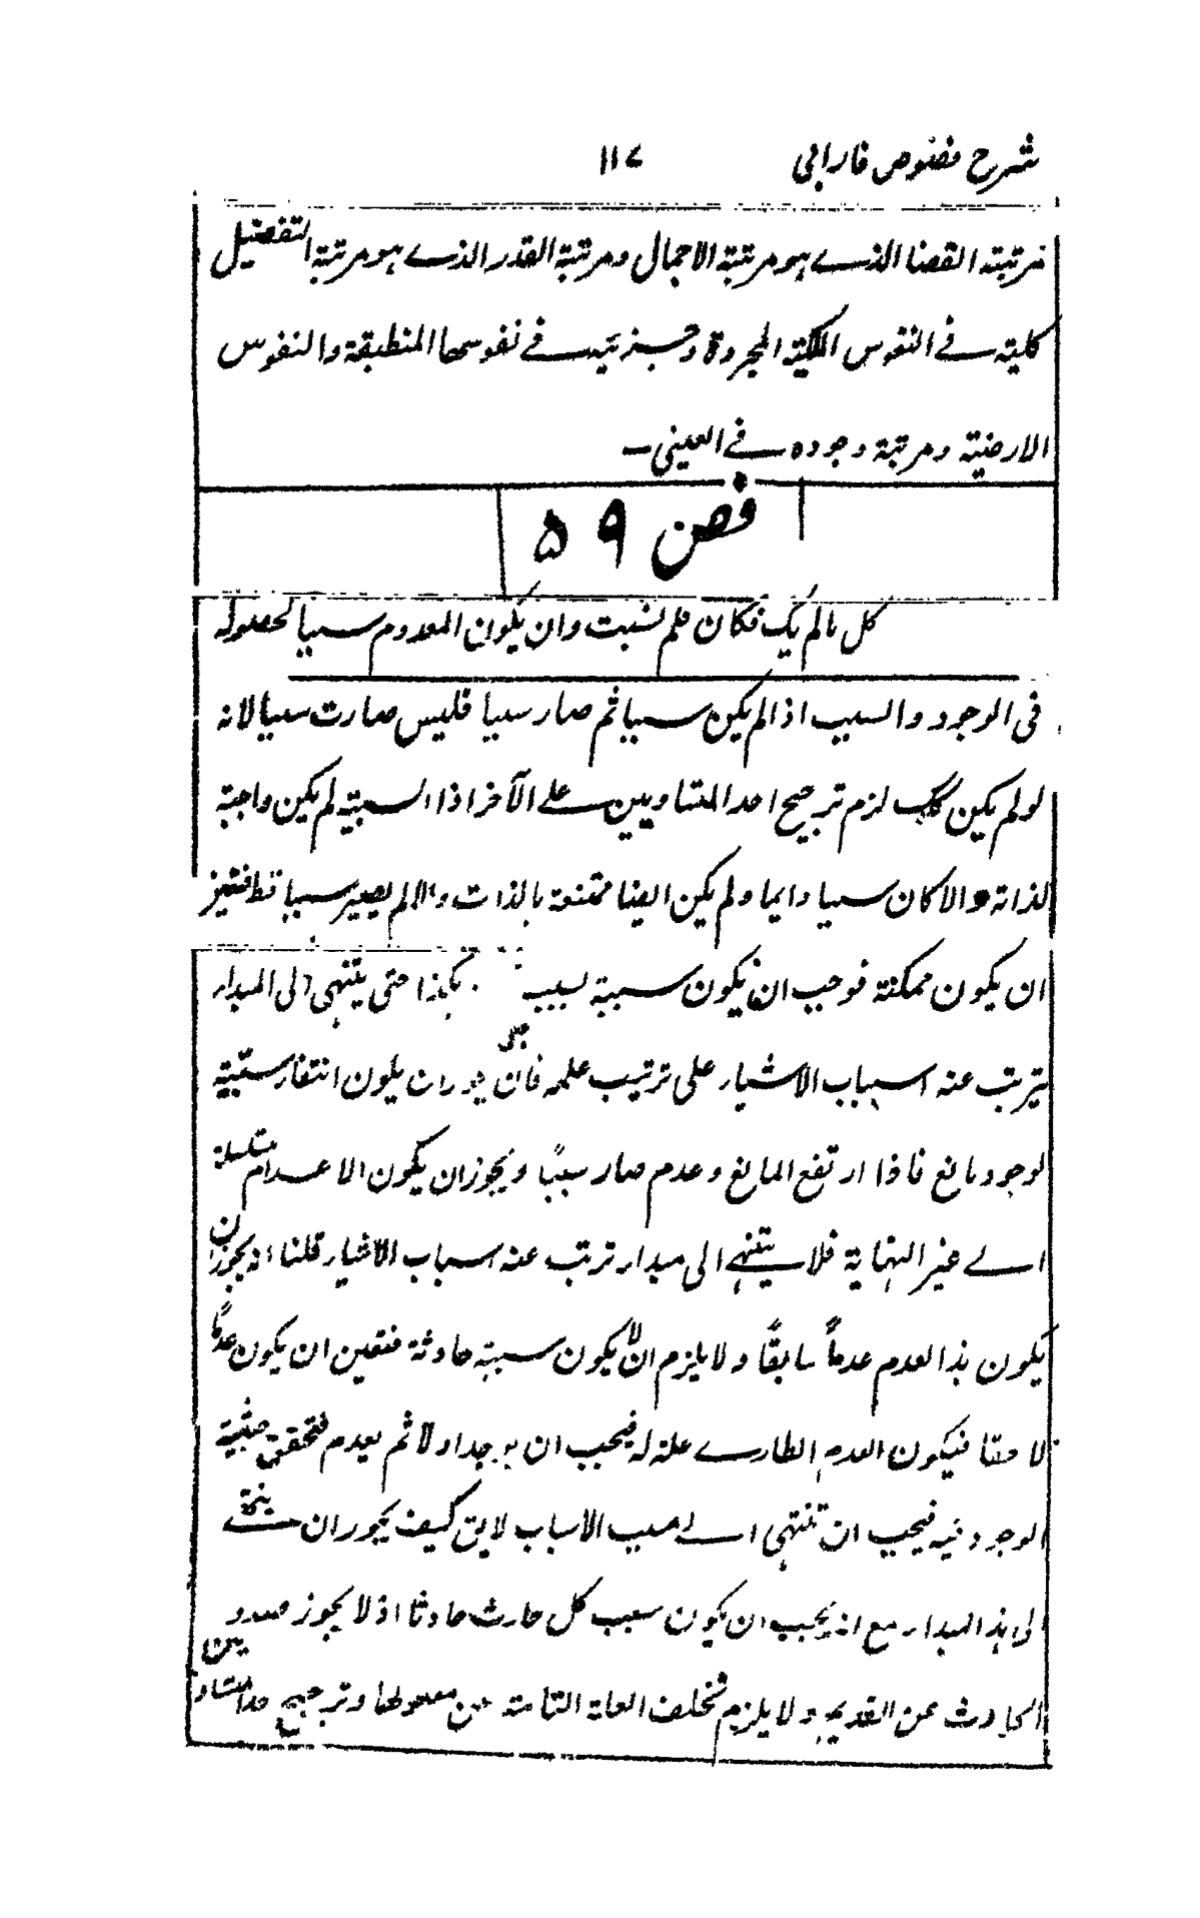 شرح فصوص فارابی ۱۱۷
مرتبته القضا الذے ہو مرتبة الاجمال ومرتبة القدر الذے ہو مرتبة التفصیل
کلیتہ فے النفوس الملکیة المجردة وجزئیتہ فے نفوسها المنطبعة والنفوس
الارضیة ومرتبة وجوده فے العینی۔
فص ۵۹
کل مالم یک فکان فلہ سبب ولن یکون المعدوم سببا لحصوله
فی الوجود والسبب اذا لم یکن سببا ثم صار سببا فلیس صارت سببا لانہ
لو لم یکن کک لزم ترجیح احد المتساویین علے الآخر اذا السببیة لم یکن واجبة
لذاتہ والا کان سببا دایما ولم یکن ایضا ممتنعة بالذات والا لم یصیر سببا قط
ان یکون ممکنة فوجب ان یکون سببیة لسبب ہکذا حتی ینتہی الی المبدار
یترتب عنہ اسباب الاشیار علی ترتیب علمہ فان یکون انتفار سببیتہ
لوجود مانع فاذا ارتفع المانع وعدم صار سببًا ویجوز ان یکون الاعدام متسلسلة
اے غیر النہایة فلا ینتہے الی مبدار ترتب عنہ اسباب الاشیار قلنا انہ یجوز ان
یکون ہذا العدم عدماً سابقًا ولا یلزم ان لا یکون سببیة حادثة فتعین ان یکون عدمًا
لاحقا فیکون العدم الطارے علة لہ فیجب ان یوجد اولا ثم یعدم فتحقق حیثیة
الوجود فیہ فیجب ان تنتہی الے مسبب الاسباب لایق کیف یجوز ان ینتہے
الی ہذا المبدار مع انہ یجب ان یکون سبب کل حادث حادثا اذ لا یجوز صدور
الحادث عن القدیم ولا یلزم تخلف العلة التامة عن معلولها وترجیح احد المتساویین